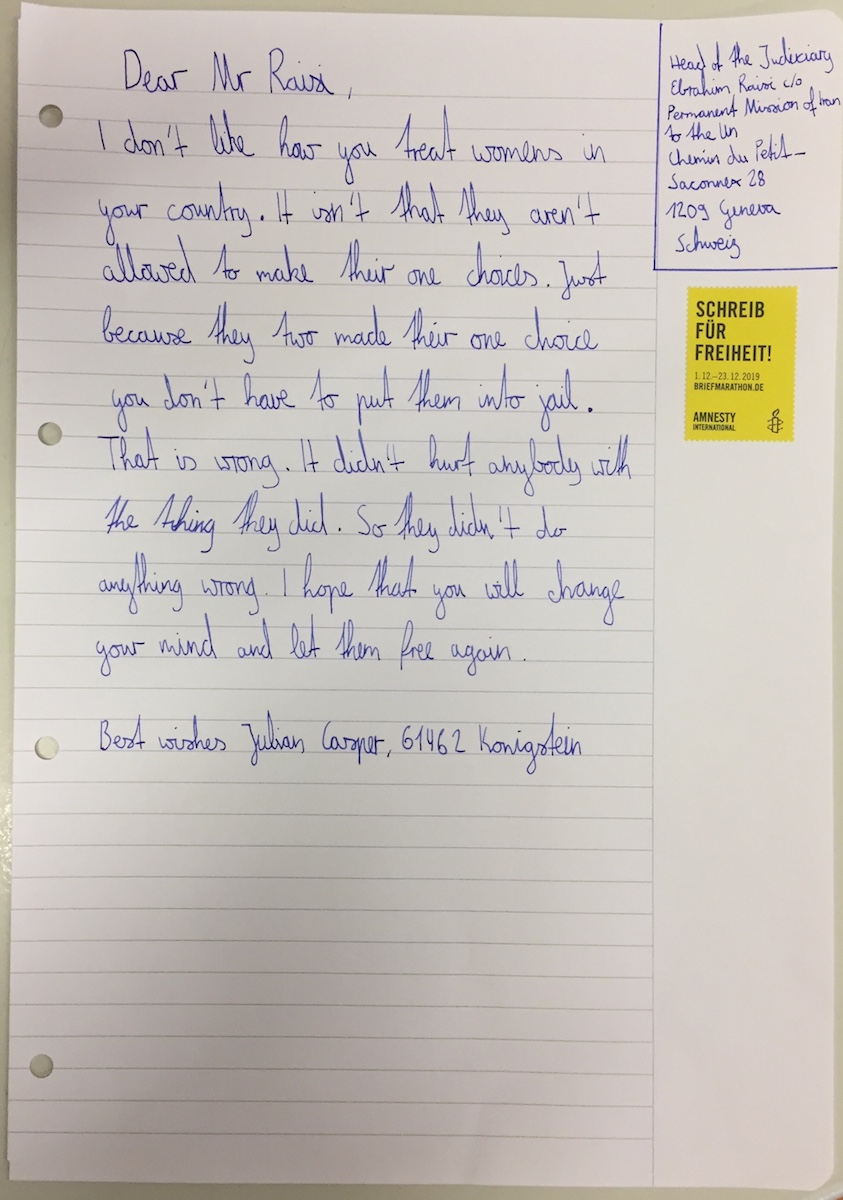 Dear Mr Raisi,
I don't like how you treat womens in
your country. It isn't that they aren't
allowed to make their one choices. Just
because they two made their one choice
you don't have to put them into jail.
That is wrong. It didn't hurt anybody with
the thing they did. So they didn't do
anything wrong. I hope that you will change
your mind and let them free again.
Best wishes Julian Casper, 61462 Konigstein
Head of the Judiciary
Ebrahim Raisi c/o
Permanent Mission of Iran
to the Un
Chemin du Petit-
Saconnex 28
1209 Geneva
Schweiz
SCHREIB
FÜR
FREIHEIT!
1.12.–23.12.2019
BRIEFMARATHON.DE
AMNESTY
INTERNATIONAL